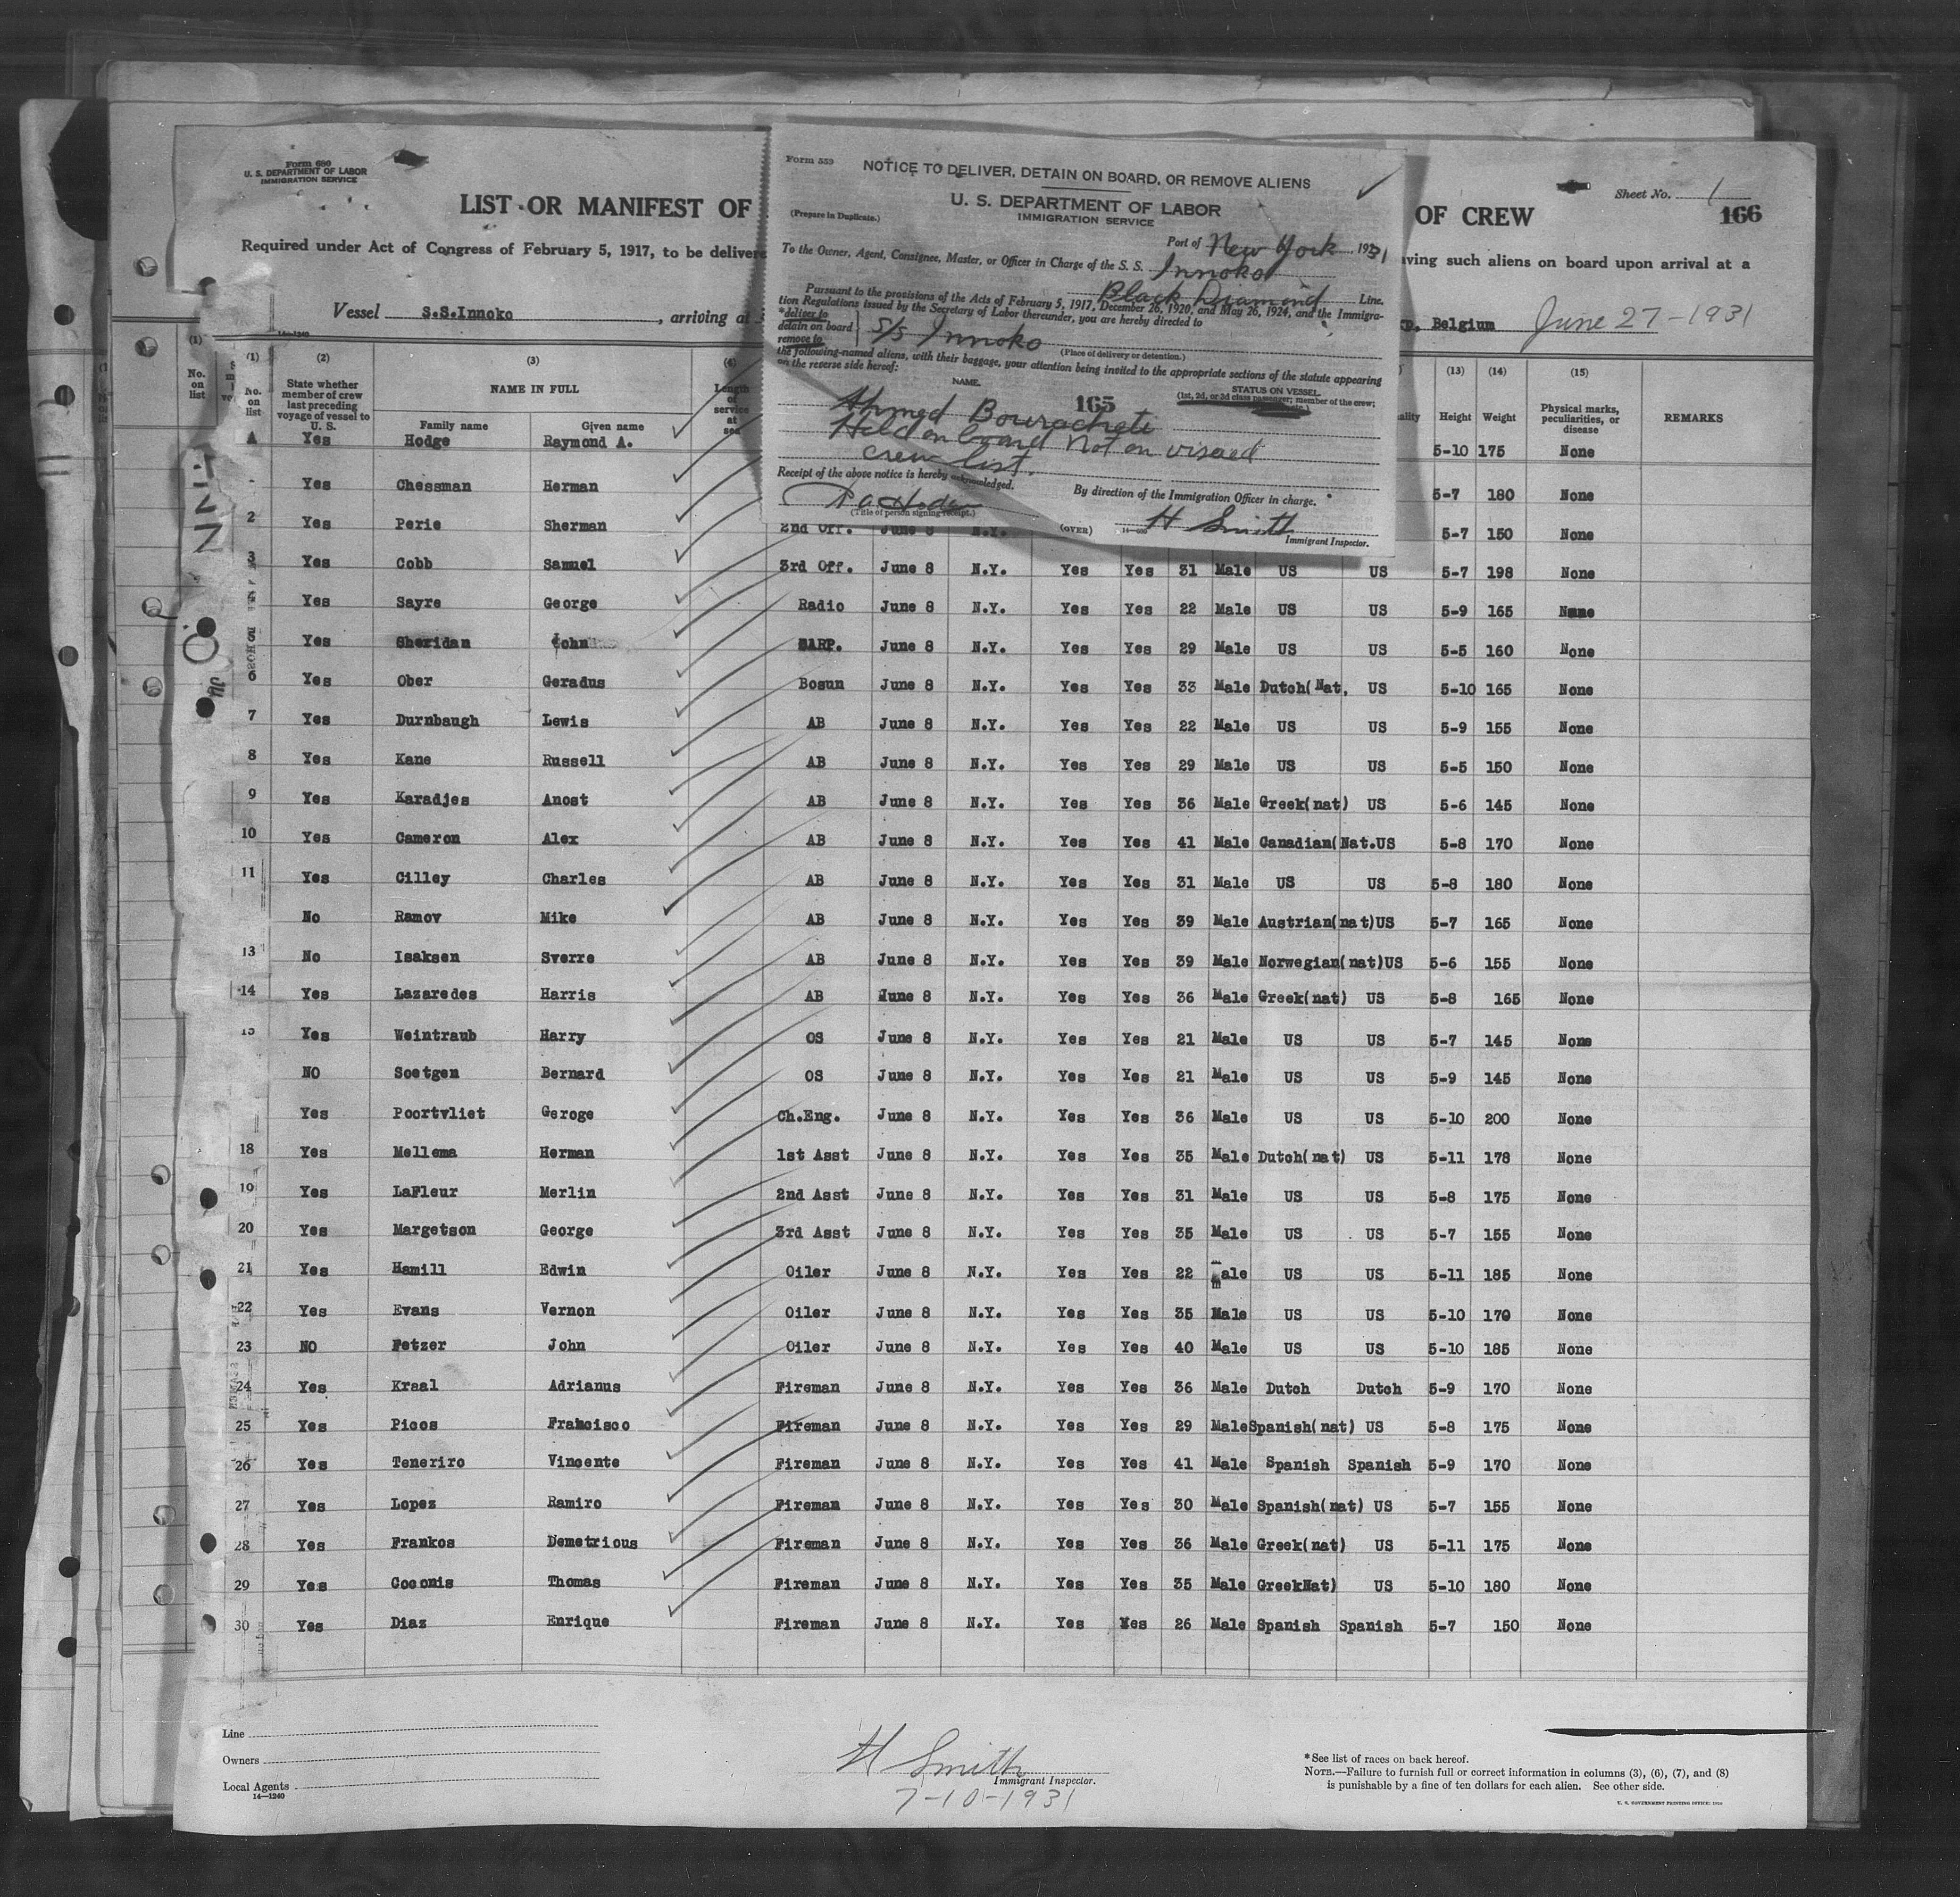 Form 680
U. S. DEPARTMENT OF LABOR
IMMIGRATION SERVICE
LIST OR MANIFEST OF
OF CREW
Sheet No. 1
166
Required under Act of Congress of February 5, 1917, to be delivere
aving such aliens on board upon arrival at a
Vessel S.S.Innoko, arriving at
, Belgium June 27-1931
Form 559
NOTICE TO DELIVER, DETAIN ON BOARD, OR REMOVE ALIENS
U. S. DEPARTMENT OF LABOR
IMMIGRATION SERVICE
(Prepare in Duplicate.)
Port of New York 1931
To the Owner, Agent, Consignee, Master, or Officer in Charge of the S. S. Innoko
Black Diamond Line.
Pursuant to the provisions of the Acts of February 5, 1917, December 26, 1920, and May 26, 1924, and the Immigra-
tion Regulations issued by the Secretary of Labor thereunder, you are hereby directed to
*deliver to
detain on board
remove to
S/S Innoko
(Place of delivery or detention.)
the following-named aliens, with their baggage, your attention being invited to the appropriate sections of the statute appearing
on the reverse side hereof:
NAME.
165
STATUS ON VESSEL
(1st, 2d, or 3d class passenger; member of the crew;
Ahmed Bouracheti
Held on board Not on visaed
crew list.
Receipt of the above notice is hereby acknowledged.
By direction of the Immigration Officer in charge.
(Title of person signing receipt.)
(OVER)
H Smith
Immigrant Inspector.
(1) (2) (3) (4) (13) (14) (15)
No. on list
State whether member of crew last preceding voyage of vessel to U. S.
NAME IN FULL
Family name Given name
Length of service at sea
Height Weight
Physical marks, peculiarities, or disease
REMARKS
Yes Hodge Raymond A. 5-10 175 None
Yes Chessman Herman 5-7 180 None
2 Yes Perie Sherman 2nd Off. June 8 N.Y. 5-7 150 None
3 Yes Cobb Samuel 3rd Off. June 8 N.Y. Yes Yes 31 Male US US 5-7 198 None
Yes Sayre George Radio June 8 N.Y. Yes Yes 22 Male US US 5-9 165 None
5 Yes Sheridan John CARP. June 8 N.Y. Yes Yes 29 Male US US 5-5 160 None
6 Yes Ober Geradus Bosun June 8 N.Y. Yes Yes 33 Male Dutch(Nat. US 5-10 165 None
7 Yes Durnbaugh Lewis AB June 8 N.Y. Yes Yes 22 Male US US 5-9 155 None
8 Yes Kane Russell AB June 8 N.Y. Yes Yes 29 Male US US 5-5 150 None
9 Yes Karadjes Anost AB June 8 N.Y. Yes Yes 36 Male Greek(nat) US 5-6 145 None
10 Yes Cameron Alex AB June 8 N.Y. Yes Yes 41 Male Canadian(Nat.US 5-8 170 None
11 Yes Cilley Charles AB June 8 N.Y. Yes Yes 31 Male US US 5-8 180 None
No Ramov Mike AB June 8 N.Y. Yes Yes 39 Male Austrian(nat)US 5-7 165 None
13 No Isaksen Sverre AB June 8 N.Y. Yes Yes 39 Male Norwegian(nat)US 5-6 155 None
14 Yes Lazaredes Harris AB June 8 N.Y. Yes Yes 36 Male Greek(nat) US 5-8 165 None
15 Yes Weintraub Harry OS June 8 N.Y. Yes Yes 21 Male US US 5-7 145 None
NO Soetgen Bernard OS June 8 N.Y. Yes Yes 21 Male US US 5-9 145 None
Yes Poortvliet Geroge Ch.Eng. June 8 N.Y. Yes Yes 36 Male US US 5-10 200 None
18 Yes Mellema Herman 1st Asst June 8 N.Y. Yes Yes 35 Male Dutch(nat) US 5-11 178 None
19 Yes LaFleur Merlin 2nd Asst June 8 N.Y. Yes Yes 31 Male US US 5-8 175 None
20 Yes Margetson George 3rd Asst June 8 N.Y. Yes Yes 35 Male US US 5-7 155 None
21 Yes Hamill Edwin Oiler June 8 N.Y. Yes Yes 22 Male US US 5-11 185 None
22 Yes Evans Vernon Oiler June 8 N.Y. Yes Yes 35 Male US US 5-10 170 None
23 NO Fetzer John Oiler June 8 N.Y. Yes Yes 40 Male US US 5-10 185 None
24 Yes Kraal Adrianus Fireman June 8 N.Y. Yes Yes 36 Male Dutch Dutch 5-9 170 None
25 Yes Picos Francisco Fireman June 8 N.Y. Yes Yes 29 MaleSpanish(nat) US 5-8 175 None
26 Yes Teneriro Vincente Fireman June 8 N.Y. Yes Yes 41 Male Spanish Spanish 5-9 170 None
27 Yes Lopez Ramiro Fireman June 8 N.Y. Yes Yes 30 Male Spanish(nat) US 5-7 155 None
28 Yes Frankos Demetrious Fireman June 8 N.Y. Yes Yes 36 Male Greek(nat) US 5-11 175 None
29 Yes Coconis Thomas Fireman June 8 N.Y. Yes Yes 35 Male GreekNat) US 5-10 180 None
30 Yes Diaz Enrique Fireman June 8 N.Y. Yes Yes 26 Male Spanish Spanish 5-7 150 None
Line
Owners
Local Agents
14—1240
H Smith
Immigrant Inspector.
7-10-1931
*See list of races on back hereof.
NOTE.—Failure to furnish full or correct information in columns (3), (6), (7), and (8)
is punishable by a fine of ten dollars for each alien. See other side.
U. S. GOVERNMENT PRINTING OFFICE: